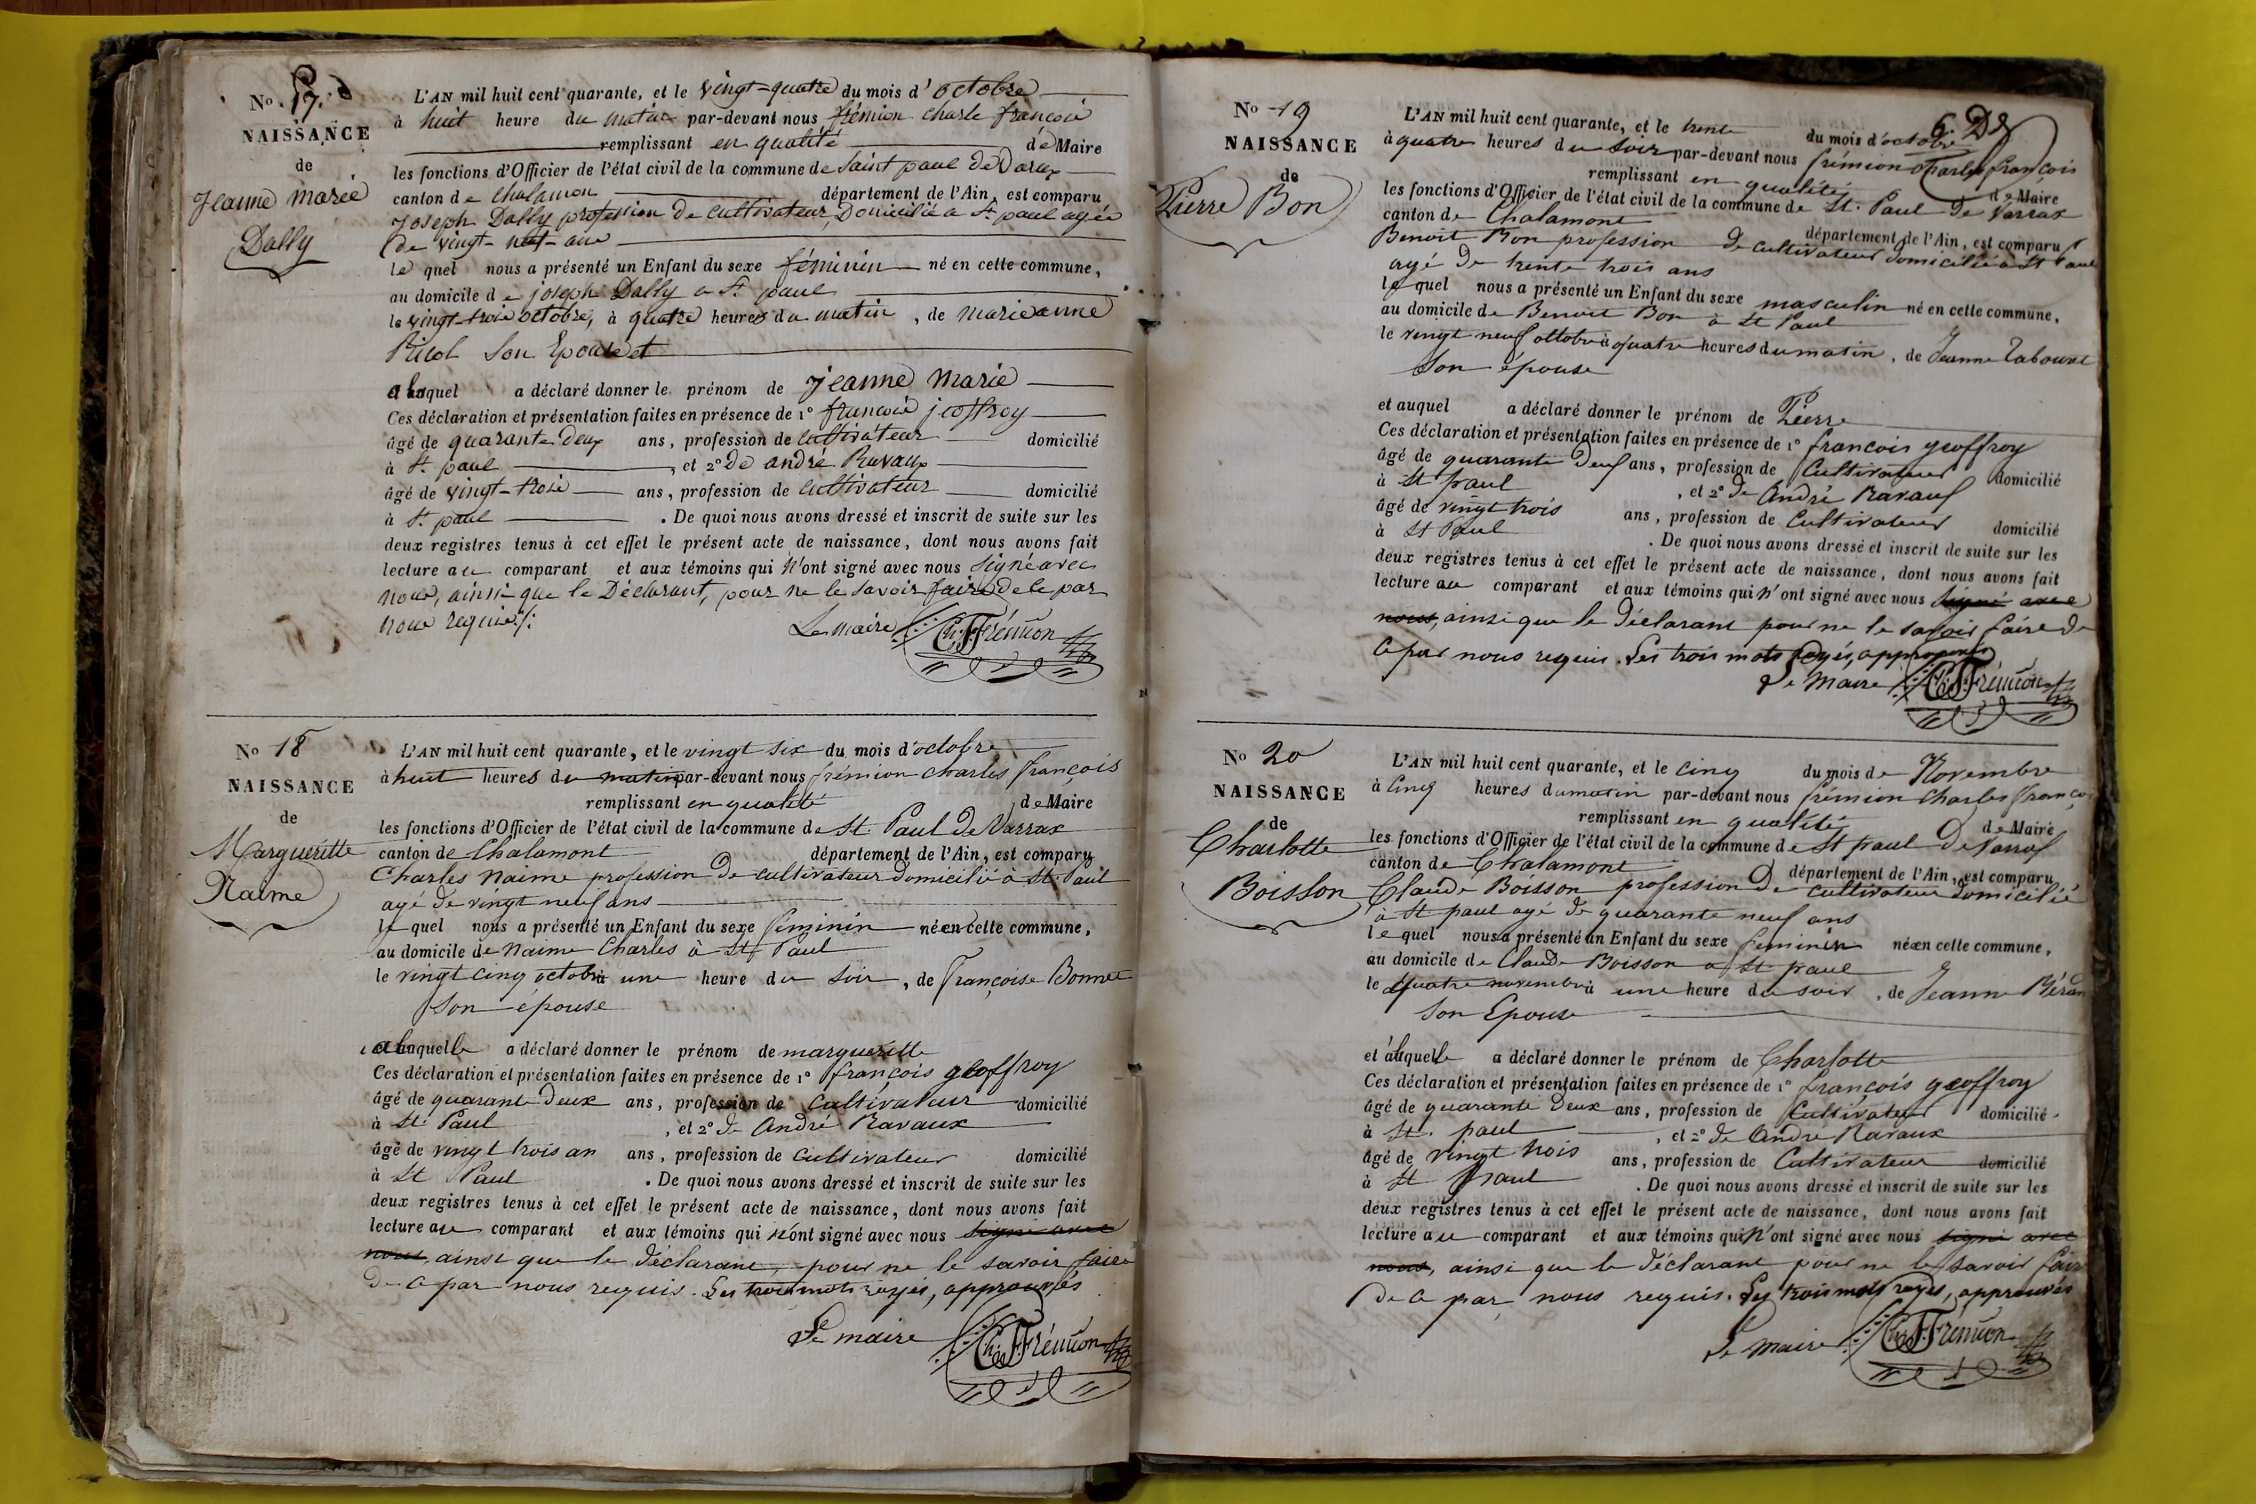 No 17.
NAISSANCE
de
Jeanne Marie
Dally
L'AN mil huit cent quarante, et le vingt-quatre du mois d'octobre
à huit heure du matin par-devant nous frémion charle françois
remplissant en qualité de Maire
les fonctions d'Officier de l'état civil de la commune de Saint paul de Varax
canton de chalamon département de l'Ain, est comparu
joseph Dally profession de cultivateur, Domicilié a St paul agée
de vingt- ans
le quel nous a présenté un Enfant du sexe féminin né en cette commune,
au domicile de joseph Dally a St. paul
le vingt-trois octobre, à quatre heures du matin, de marie anne
Picol Son Epouse et
a laquel a déclaré donner le prénom de jeanne marie
Ces déclaration et présentation faites en présence de 1º françois jeoffroy
âgé de quarante deux ans, profession de cultivateur domicilié
à St. paul, et 2º de andré Ravaux
âgé de vingt-trois ans, profession de cultivateur domicilié
à St. paul. De quoi nous avons dressé et inscrit de suite sur les
deux registres tenus à cet effet le présent acte de naissance, dont nous avons fait
lecture au comparant et aux témoins qui n'ont signé avec nous signé avec
nous, ainsi que le Déclarant, pour ne le savoir faire de ce par
nous requis /:
Le maire Ch. F. Frémion
No 18
NAISSANCE
de
Margueritte
Naime
L'AN mil huit cent quarante, et le vingt six du mois d'octobre
à huit heures du matin par-devant nous frémion charles françois
remplissant en qualité de Maire
les fonctions d'Officier de l'état civil de la commune de St. Paul de Varrax
canton de Chalamont département de l'Ain, est comparu
Charles Naime profession de cultivateur domicilié à St. Paul
agé de vingt neuf ans
le quel nous a présenté un Enfant du sexe feminin née en cette commune,
au domicile de Naime Charles à St Paul
le vingt cinq octobre à une heure du soir, de Françoise Bonnet
son épouse
a laquelle a déclaré donner le prénom de margueritte
Ces déclaration et présentation faites en présence de 1º françois geoffroy
âgé de quarante deux ans, profession de cultivateur domicilié
à St. Paul, et 2º de andré Ravaux
âgé de vingt trois an ans, profession de cultivateur domicilié
à St Paul. De quoi nous avons dressé et inscrit de suite sur les
deux registres tenus à cet effet le présent acte de naissance, dont nous avons fait
lecture au comparant et aux témoins qui n'ont signé avec nous signé avec
nous, ainsi que le déclarant, pour ne le savoir faire
de ce par nous requis. Les trois mots rayés, approuvés
Le maire Ch. F. Frémion
No 19
NAISSANCE
de
Pierre Bon
L'AN mil huit cent quarante, et le trente du mois d'octobre
à quatre heures du soir par-devant nous frémion Charles françois
remplissant en qualité de Maire
les fonctions d'Officier de l'état civil de la commune de St. Paul de Varrax
canton de Chalamont département de l'Ain, est comparu
Benoit Bon profession de cultivateur domicilié à St Paul
agé de trente trois ans
le quel nous a présenté un Enfant du sexe masculin né en cette commune,
au domicile de Benoit Bon à St Paul
le vingt neuf ottobre à quatre heures du matin, de Jeanne Tabouret
son épouse
et auquel a déclaré donner le prénom de Pierre
Ces déclaration et présentation faites en présence de 1º françois geoffroy
âgé de quarante deux ans, profession de Cultivateur domicilié
à St paul, et 2º de André Ravaux
âgé de vingt trois ans, profession de Cultivateur domicilié
à St Paul. De quoi nous avons dressé et inscrit de suite sur les
deux registres tenus à cet effet le présent acte de naissance, dont nous avons fait
lecture au comparant et aux témoins qui n'ont signé avec nous signé avec
nous, ainsi que le déclarant pour ne le savoir faire de
ce par nous requis. Les trois mots rayés, approuvés
Le Maire Ch. F. Frémion
No 20
NAISSANCE
de
Charlotte
Boisson
L'AN mil huit cent quarante, et le cinq du mois de Novembre
à Cinq heures du matin par-devant nous frémion Charles françois
remplissant en qualité de Maire
les fonctions d'Officier de l'état civil de la commune de St paul de Varrax
canton de Chalamont département de l'Ain, est comparu
Claude Boisson profession de cultivateur domicilié
à St paul agé de quarante neuf ans
le quel nous a présenté un Enfant du sexe feminin née en cette commune,
au domicile de Claude Boisson a St paul
le quatre novembre à une heure du soir, de Jeanne
son Epouse
et à laquelle a déclaré donner le prénom de Charlotte
Ces déclaration et présentation faites en présence de 1º françois geoffroy
âgé de quarante deux ans, profession de Cultivateur domicilié
à St. paul, et 2º de Andre Ravaux
âgé de vingt trois ans, profession de Cultivateur domicilié
à St paul. De quoi nous avons dressé et inscrit de suite sur les
deux registres tenus à cet effet le présent acte de naissance, dont nous avons fait
lecture au comparant et aux témoins qui n'ont signé avec nous signé avec
nous, ainsi que le déclarant pour ne le savoir faire
de ce par nous requis. Les trois mots rayés, approuvés
Le maire Ch. F. Frémion